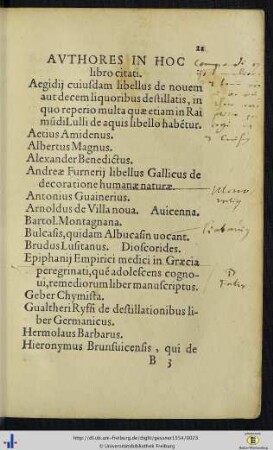 AVTHORES IN HOC
libro citati.
Aegidij cuiusdam libellus de nouem
aut decem liquoribus destillatis, in
quo reperio multa quæ etiam in Rai
mũdi Lulli de aquis libello habẽtur.
Aetius Amidenus.
Albertus Magnus.
Alexander Benedictus.
Andreæ Furnerij libellus Gallicus de
decoratione humanæ naturæ.
Antonius Guainerius.
Arnoldus de Villa noua. Auicenna.
Bartol. Montagnana.
Bulcasis, quidam Albucasin uocant.
Brudus Lusitanus. Dioscorides.
Epiphanij Empirici medici in Græcia
peregrinati, quẽ adolescens cogno-
ui, remediorum liber manuscriptus.
Geber Chymista.
Gualtheri Ryffi de destillationibus li-
ber Germanicus.
Hermolaus Barbarus.
Hieronymus Brunsuicensis, qui de
B 3
http://dl.ub.uni-freiburg.de/diglit/gessner1554/0023
© Universitätsbibliothek Freiburg